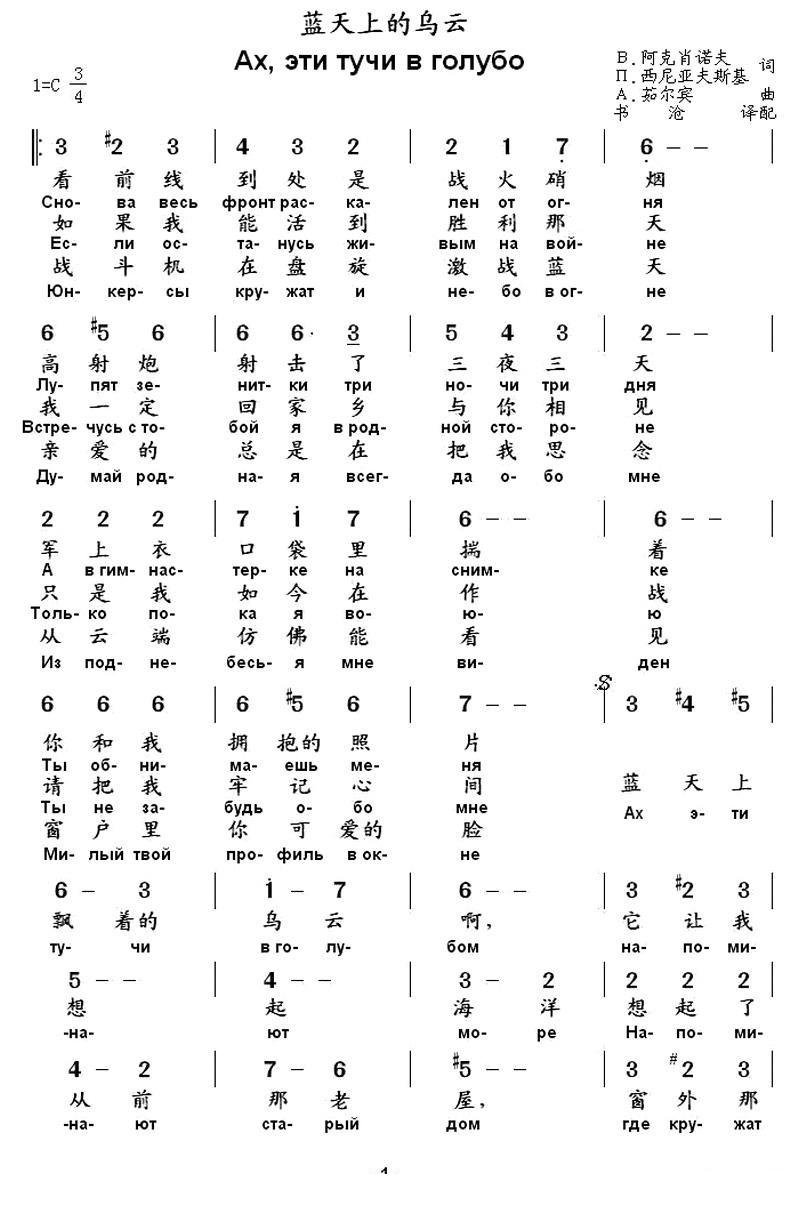 蓝天上的乌云
Ах, эти тучи в голубо
1=C 3/4
В.阿克肖诺夫 词
П.西尼亚夫斯基
А.茹尔宾 曲
书 沧 译配
3 #2 3 | 4 3 2 | 2 1 7 | 6 - - |
看 前 线 到 处 是 战 火 硝 烟
Сно- ва весь фронт рас- ка- лен от ог- ня
如 果 我 能 活 到 胜 利 那 天
Ес- ли ос- та- нусь жи- вым на вой- не
战 斗 机 在 盘 旋 激 战 蓝 天
Юн- кер- сы кру- жат и не- бо в ог- не
6 #5 6 | 6 6· 3 | 5 4 3 | 2 - - |
高 射 炮 射 击 了 三 夜 三 天
Лу- пят зе- нит- ки три но- чи три дня
我 一 定 回 家 乡 与 你 相 见
Встре- чусь с то- бой я в род- ной сто- ро- не
亲 爱 的 总 是 在 把 我 思 念
Ду- май род- на- я всег- да о- бо мне
2 2 2 | 7 1 7 | 6 - - | 6 - - |
军 上 衣 口 袋 里 揣 着
А в гим- нас- тер- ке на сним- ке
只 是 我 如 今 在 作 战
Толь- ко по- ка я во- ю- ю
从 云 端 仿 佛 能 看 见
Из под- не- бесь- я мне ви- ден
6 6 6 | 6 #5 6 | 7 - - | 3 #4 #5 |
你 和 我 拥 抱的 照 片
Ты об- ни- ма- ешь ме- ня
请 把 我 牢 记 心 间 蓝 天 上
Ты не за- будь о- бо мне Ах э- ти
窗 户 里 你 可 爱的 脸
Ми- лый твой про- филь в ок- не
6 - 3 | 1 - 7 | 6 - - | 3 #2 3 |
飘 着的 乌 云 啊, 它 让 我
ту- чи в го- лу- бом на- по- ми-
5 - - | 4 - - | 3 - 2 | 2 2 2 |
想 起 海 洋 想 起 了
-на- ют мо- ре На- по- ми-
4 - 2 | 7 - 6 | #5 - - | 3 #2 3 |
从 前 那 老 屋, 窗 外 那
-на- ют ста- рый дом где кру- жат
1